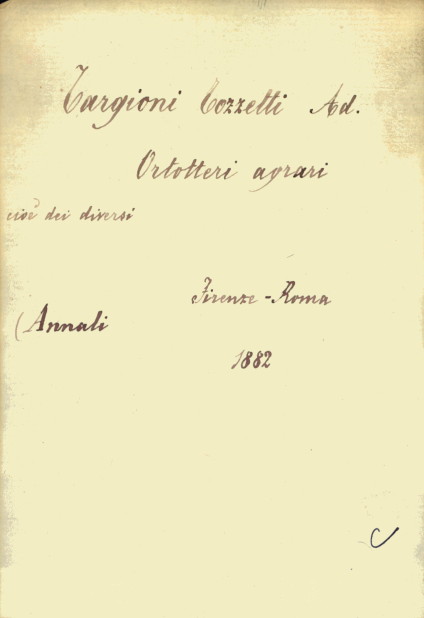 Targioni Tozzetti Ad.
Ortotteri agrari
cioè dei diversi
Firenze - Roma
(Annali
1882
C